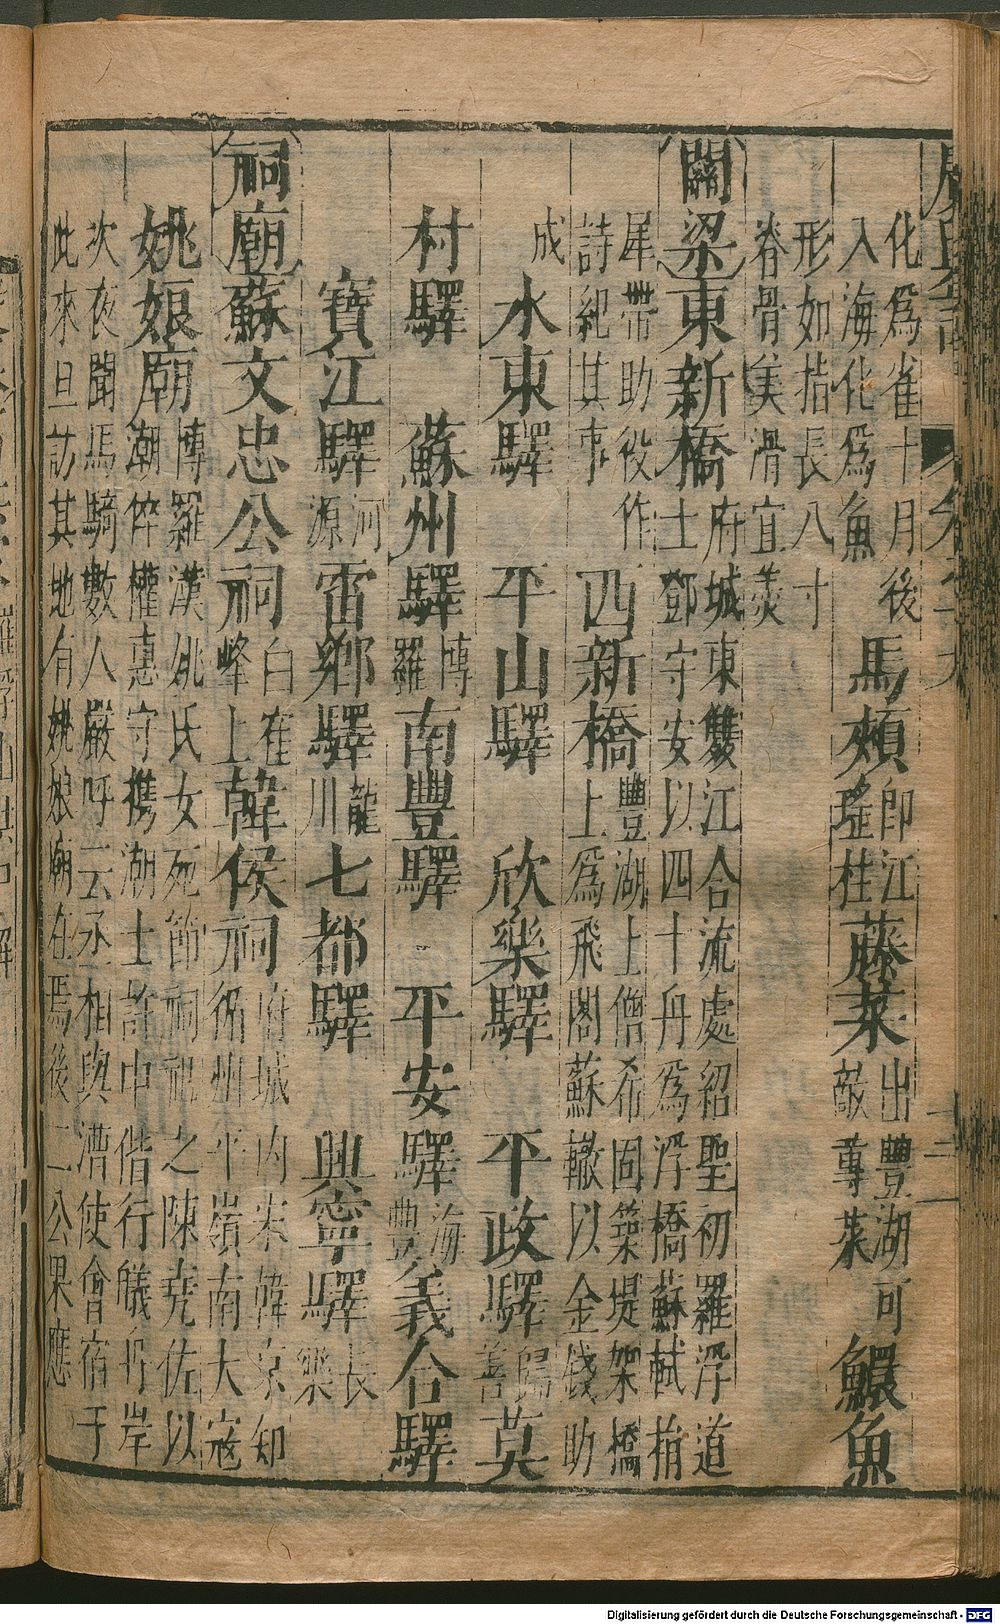 廣輿記
化為雀十月後
入海化為魚
馬頰
即江
瑤柱
藤菜
出豐湖可
敵蓴菜
魚
形如指長八寸
脊骨美滑宜羹
關梁東新橋
府城東雙江合流處紹聖初羅浮道
士鄧守安以四十舟為浮橋蘇軾捐
犀帶助役作
詩紀其事
四新橋
豐湖上僧希固築堤架橋
上為飛閣蘇轍以金錢助
成
水東驛 平山驛 欣樂驛 平政驛
歸
善
莫
村驛 蘇州驛
博
羅
南豐驛 平安驛
海
豐
義合驛
寶江驛
河
源
雷鄉驛
龍
川
七都驛 興寧驛
長
樂
祠廟蘇文忠公祠
白隺
峰上
韓侯祠
府城内宋韓京知
循州平嶺南大寇
姚娘廟
博羅漢姚氏女死節祠祀之陳堯佐以
潮倅權惠守携潮士許申偕行艤舟岸
次夜聞馬騎數人嚴呼云丞相與漕使會宿于
此來旦訪其地有姚娘廟在焉後二公果應
Digitalisierung gefördert durch die Deutsche Forschungsgemeinschaft - DFG